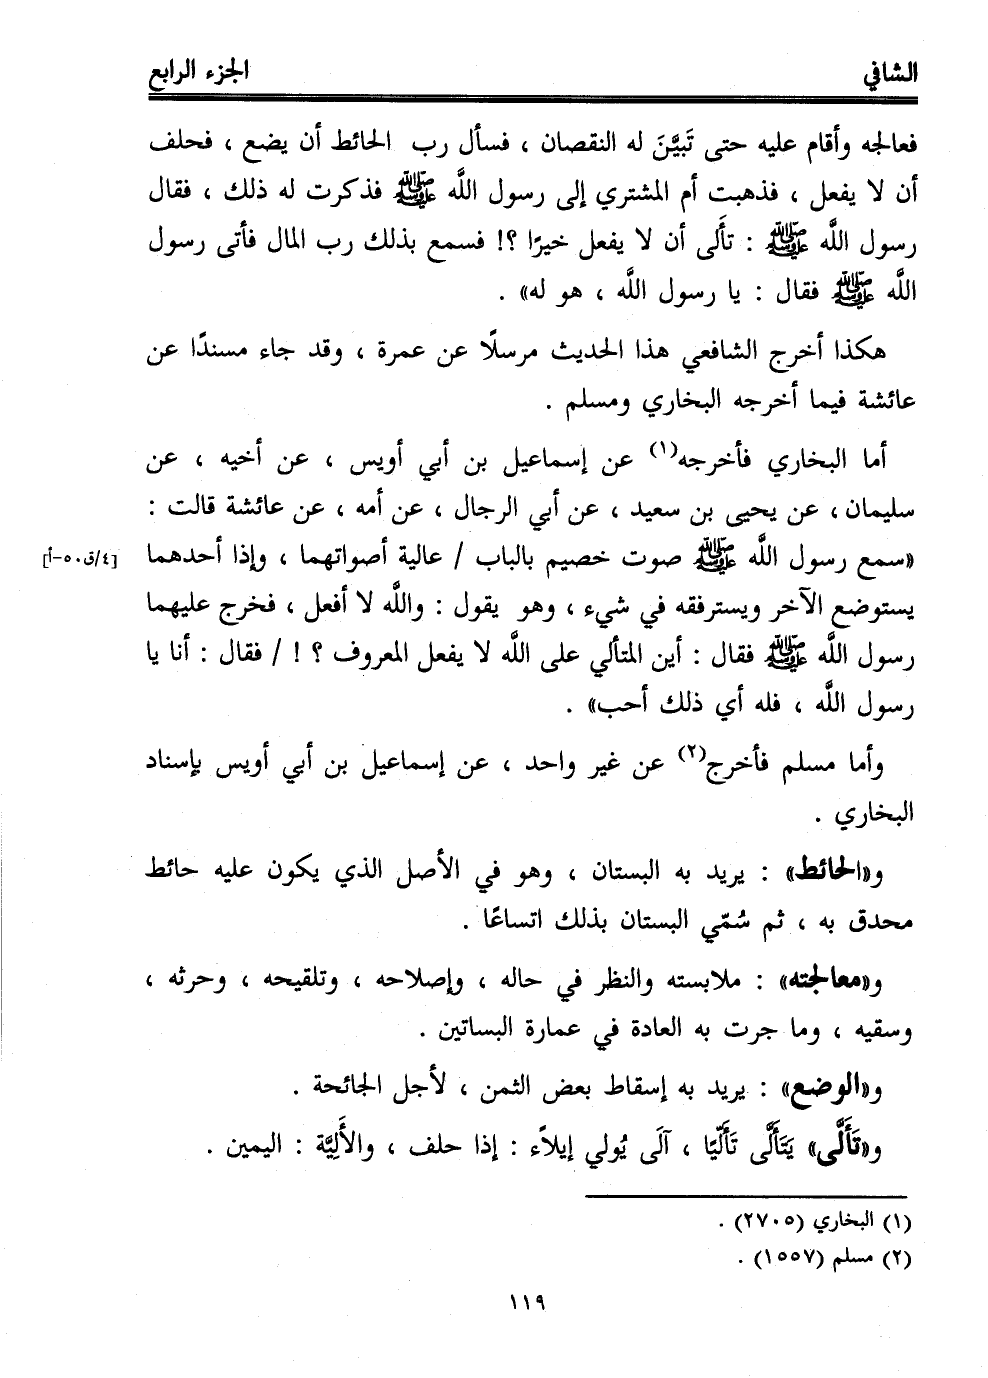 الشافي الجزء الرابع
فعالجه وأقام عليه حتى تَبيَّنَ له النقصان ، فسأل رب الحائط أن يضع ، فحلف
أن لا يفعل ، فذهبت أم المشتري إلى رسول اللَّه ﷺ فذكرت له ذلك ، فقال
رسول اللَّه ﷺ : تأَلى أن لا يفعل خيرًا ؟! فسمع بذلك رب المال فأتى رسول
اللَّه ﷺ فقال : يا رسول اللَّه ، هو له» .
هكذا أخرج الشافعي هذا الحديث مرسلًا عن عمرة ، وقد جاء مسندًا عن
عائشة فيما أخرجه البخاري ومسلم .
أما البخاري فأخرجه(١) عن إسماعيل بن أبي أويس ، عن أخيه ، عن
سليمان ، عن يحيى بن سعيد ، عن أبي الرجال ، عن أمه ، عن عائشة قالت :
«سمع رسول اللَّه ﷺ صوت خصيم بالباب / عالية أصواتهما ، وإذا أحدهما [٤/ق٥٠-أ]
يستوضع الآخر ويسترفقه في شيء ، وهو يقول : واللَّه لا أفعل ، فخرج عليهما
رسول اللَّه ﷺ فقال : أين المتألي على اللَّه لا يفعل المعروف ؟ ! / فقال : أنا يا
رسول اللَّه ، فله أي ذلك أحب» .
وأما مسلم فأخرج(٢) عن غير واحد ، عن إسماعيل بن أبي أويس بإسناد
البخاري .
و«الحائط» : يريد به البستان ، وهو في الأصل الذي يكون عليه حائط
محدق به ، ثم سُمّي البستان بذلك اتساعًا .
و«معالجته» : ملابسته والنظر في حاله ، وإصلاحه ، وتلقيحه ، وحرثه ،
وسقيه ، وما جرت به العادة في عمارة البساتين .
و«الوضع» : يريد به إسقاط بعض الثمن ، لأجل الجائحة .
و«تَأَلَّى» يَتَأَلَّى تَأَلّيًا ، آلَى يُولي إيلاًء : إذا حلف ، والأَلِيَّة : اليمين .
(١) البخاري (٢٧٠٥) .
(٢) مسلم (١٥٥٧) .
١١٩